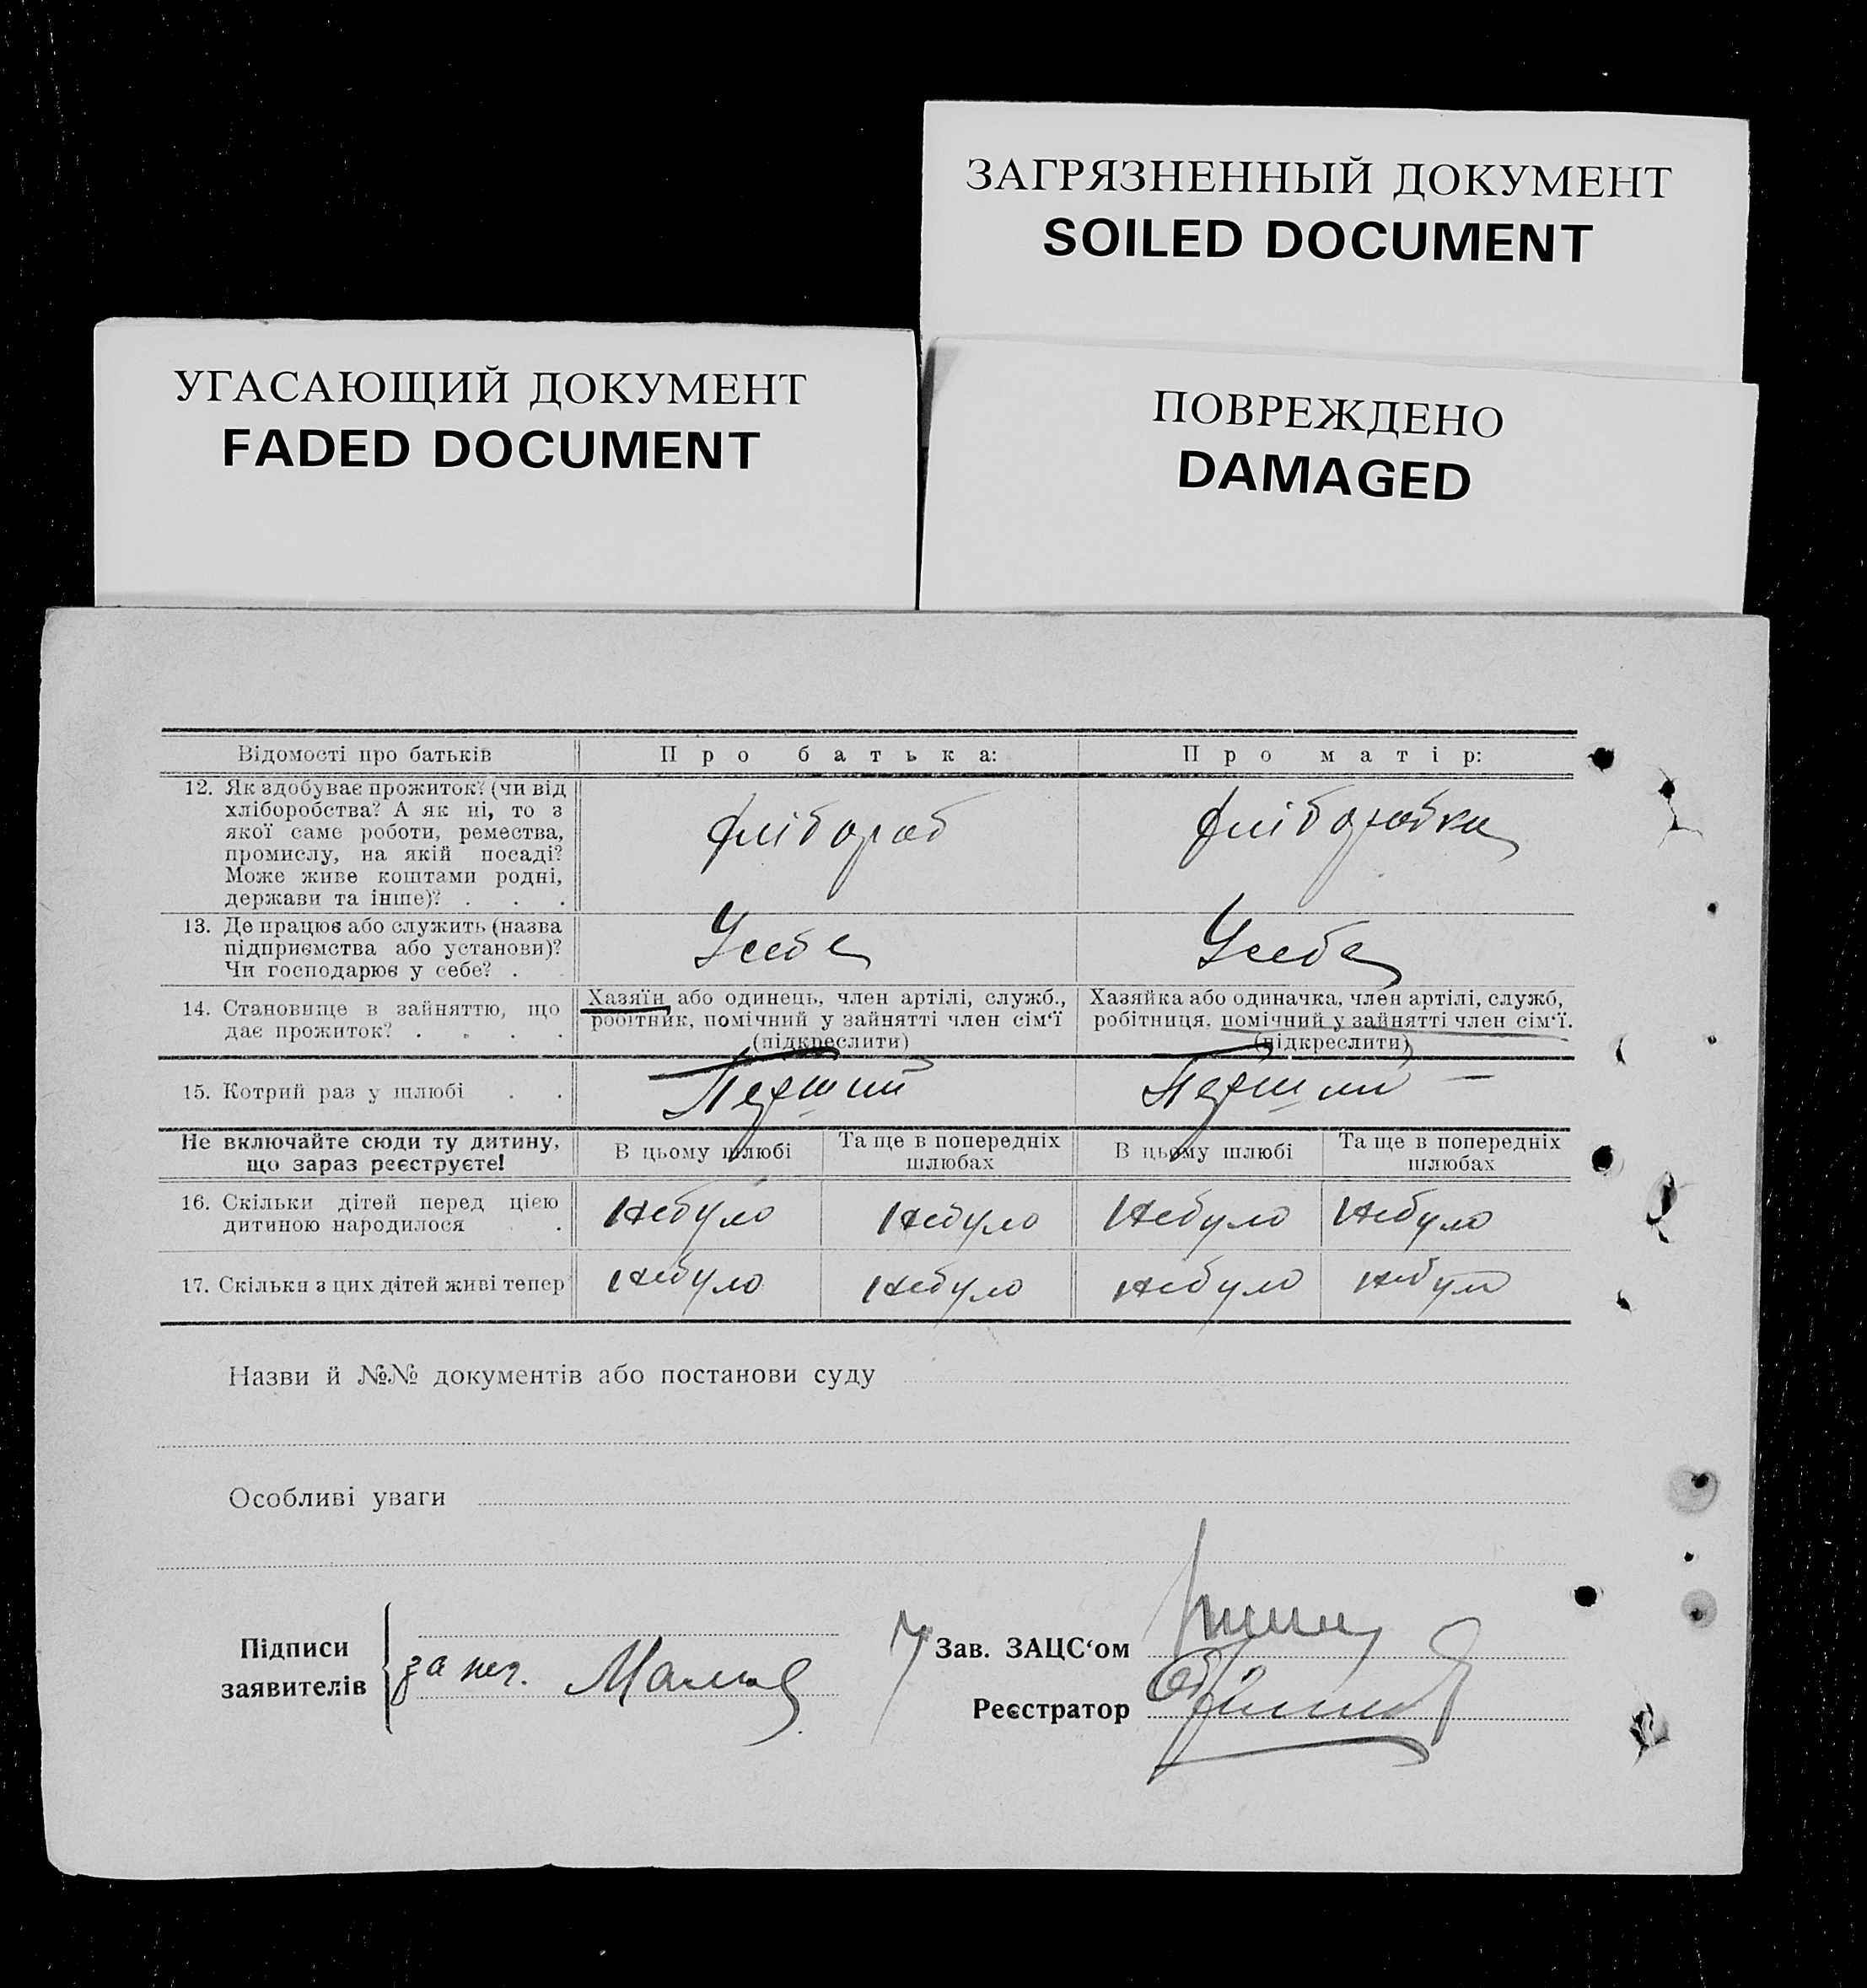 ЗАГРЯЗНЕННЫЙ ДОКУМЕНТ
SOILED DOCUMENT
УГАСАЮЩИЙ ДОКУМЕНТ
FADED DOCUMENT
ПОВРЕЖДЕНО
DAMAGED
Відомості про батьків
Про батька:
Про матір:
12. Як здобуває прожиток? (чи від
хліборобства? А як ні, то з
якої саме роботи, ремества,
промислу, на якій посаді?
Може живе коштами родні,
держави та інше)? . . .
хлібороб
хліборобка
13. Де працює або служить (назва
підприємства або установи)?
Чи господарює у себе? .
Усебе
Усебе
14. Становище в зайняттю, що
дає прожиток? . . . .
Хазяїн або одинець, член артілі, служб.,
робітник, помічний у зайнятті член сім'ї
(підкреслити)
Хазяйка або одиначка, член артілі, служб,
робітниця, помічний у зайнятті член сім'ї.
(підкреслити)
15. Котрий раз у шлюбі . .
Перший
Перший
Не включайте сюди ту дитину,
що зараз реєструєте!
В цьому шлюбі
Та ще в попередніх
шлюбах
В цьому шлюбі
Та ще в попередніх
шлюбах
16. Скільки дітей перед цією
дитиною народилося .
Небуло
Небуло
Небуло
Небуло
17. Скільки з цих дітей живі тепер
Небуло
Небуло
Небуло
Небуло
Назви й №№ документів або постанови суду
Особливі уваги
Підписи
заявителів
за неп.
Зав. ЗАЦС'ом
Реєстратор